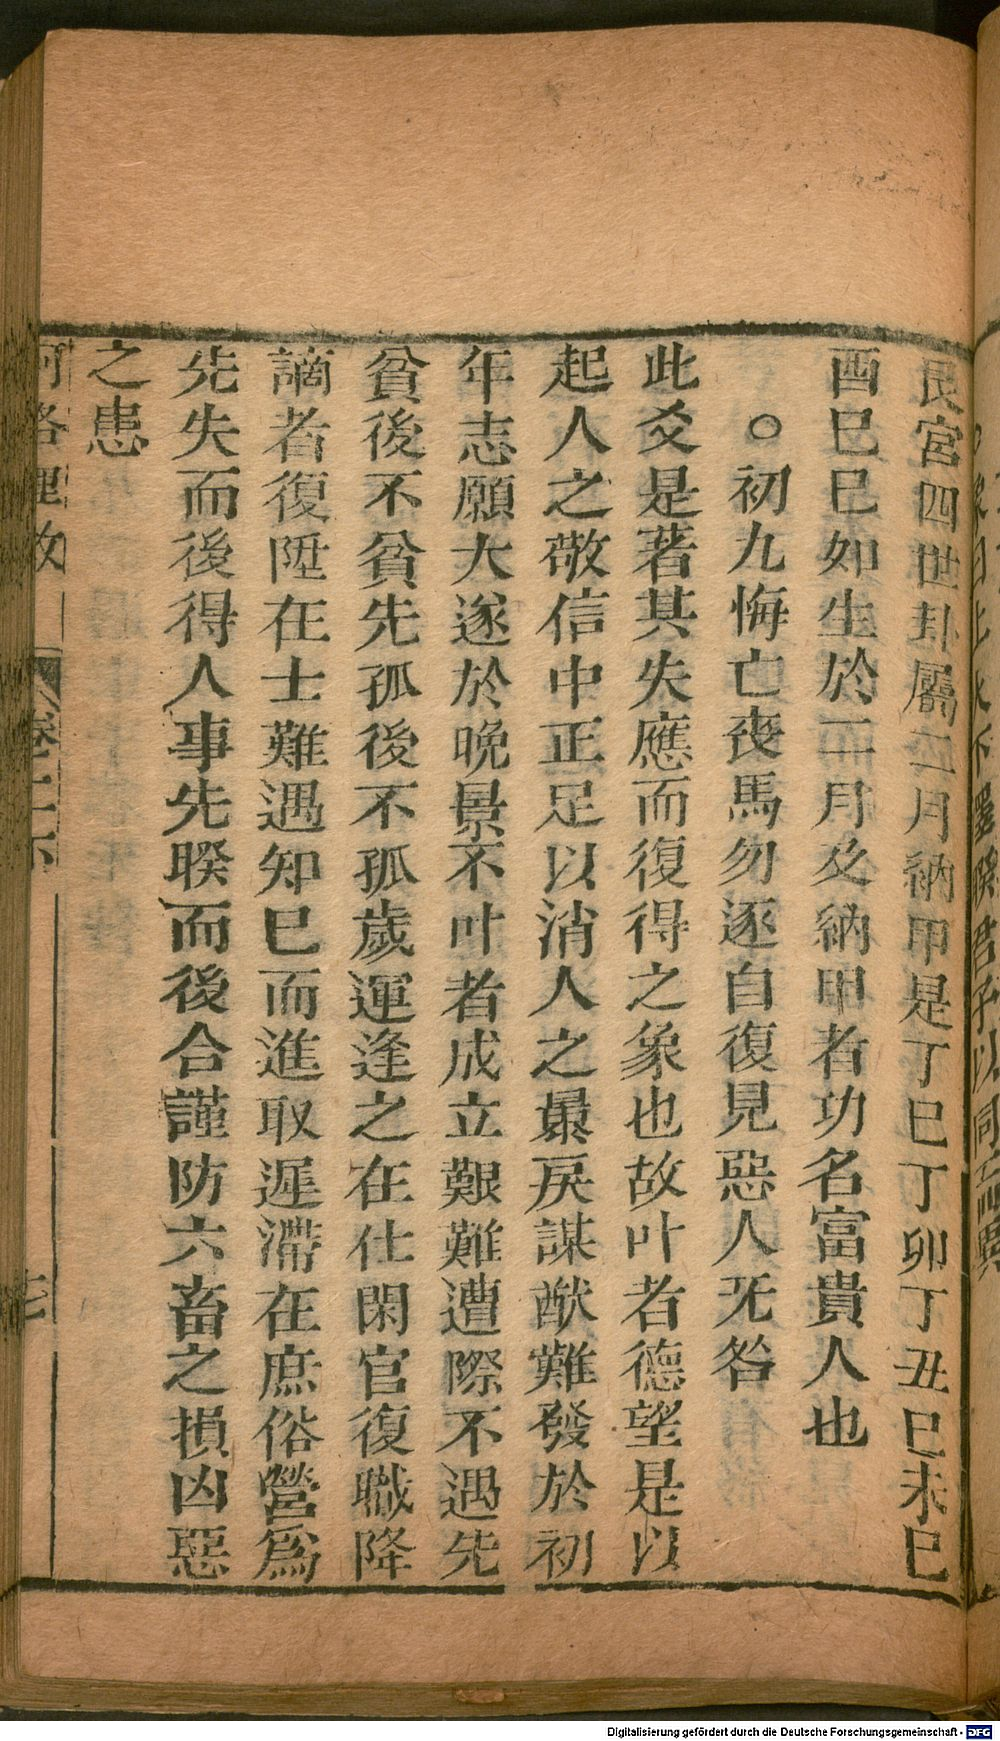 艮宮四世卦屬二月納甲是丁巳丁卯丁丑巳未巳
酉巳巳如生於二月及納甲者功名富貴人也
○初九悔亡喪馬勿逐自復見惡人旡咎
此爻是著其失應而復得之象也故叶者德望是以
起人之敬信中正足以消人之暴戾謀猷難發於初
年志願大遂於晩景不叶者成立艱難遭際不遇先
貧後不貧先孤後不孤歲運逢之在仕閑官復職降
謫者復陞在士難遇知巳而進取遲滯在庶俗營爲
先失而後得人事先睽而後合謹防六畜之損凶惡
之患
河洛理数 卷二下 七
Digitalisierung gefördert durch die Deutsche Forschungsgemeinschaft - DFG